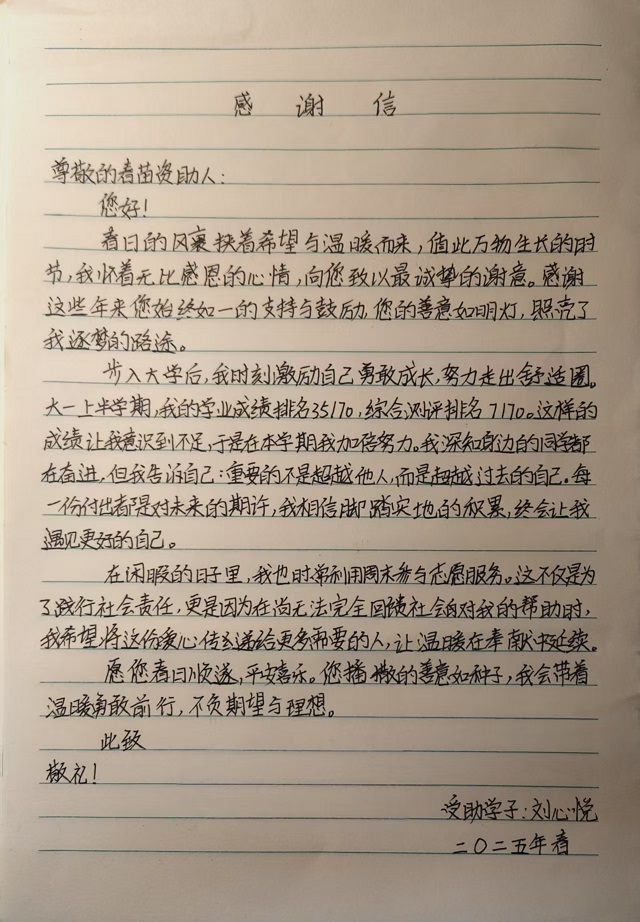 感谢信
尊敬的春苗资助人:
您好!
春日的风裹挟着希望与温暖而来,值此万物生长的时
节,我怀着无比感恩的心情,向您致以最诚挚的谢意。感谢
这些年来您始终如一的支持与鼓励,您的善意如明灯,照亮了
我逐梦的路途。
步入大学后,我时刻激励自己勇敢成长,努力走出舒适圈。
大一上半学期,我的学业成绩排名35/170,综合测评排名7/170。这样的
成绩让我意识到不足,于是在本学期我加倍努力。我深知身边的同学都
在奋进,但我告诉自己:重要的不是超越他人,而是超越过去的自己。每
一份付出都是对未来的期许,我相信脚踏实地的积累,终会让我
遇见更好的自己。
在闲暇的日子里,我也时常利用周末参与志愿服务。这不仅是为
了践行社会责任,更是因为在尚无法完全回馈社会对我的帮助时,
我希望将这份爱心传递给更多需要的人,让温暖在奉献中延续。
愿您春日顺遂,平安喜乐。您播撒的善意如种子,我会带着
温暖勇敢前行,不负期望与理想。
此致
敬礼!
受助学子:刘心悦
二〇二五年春